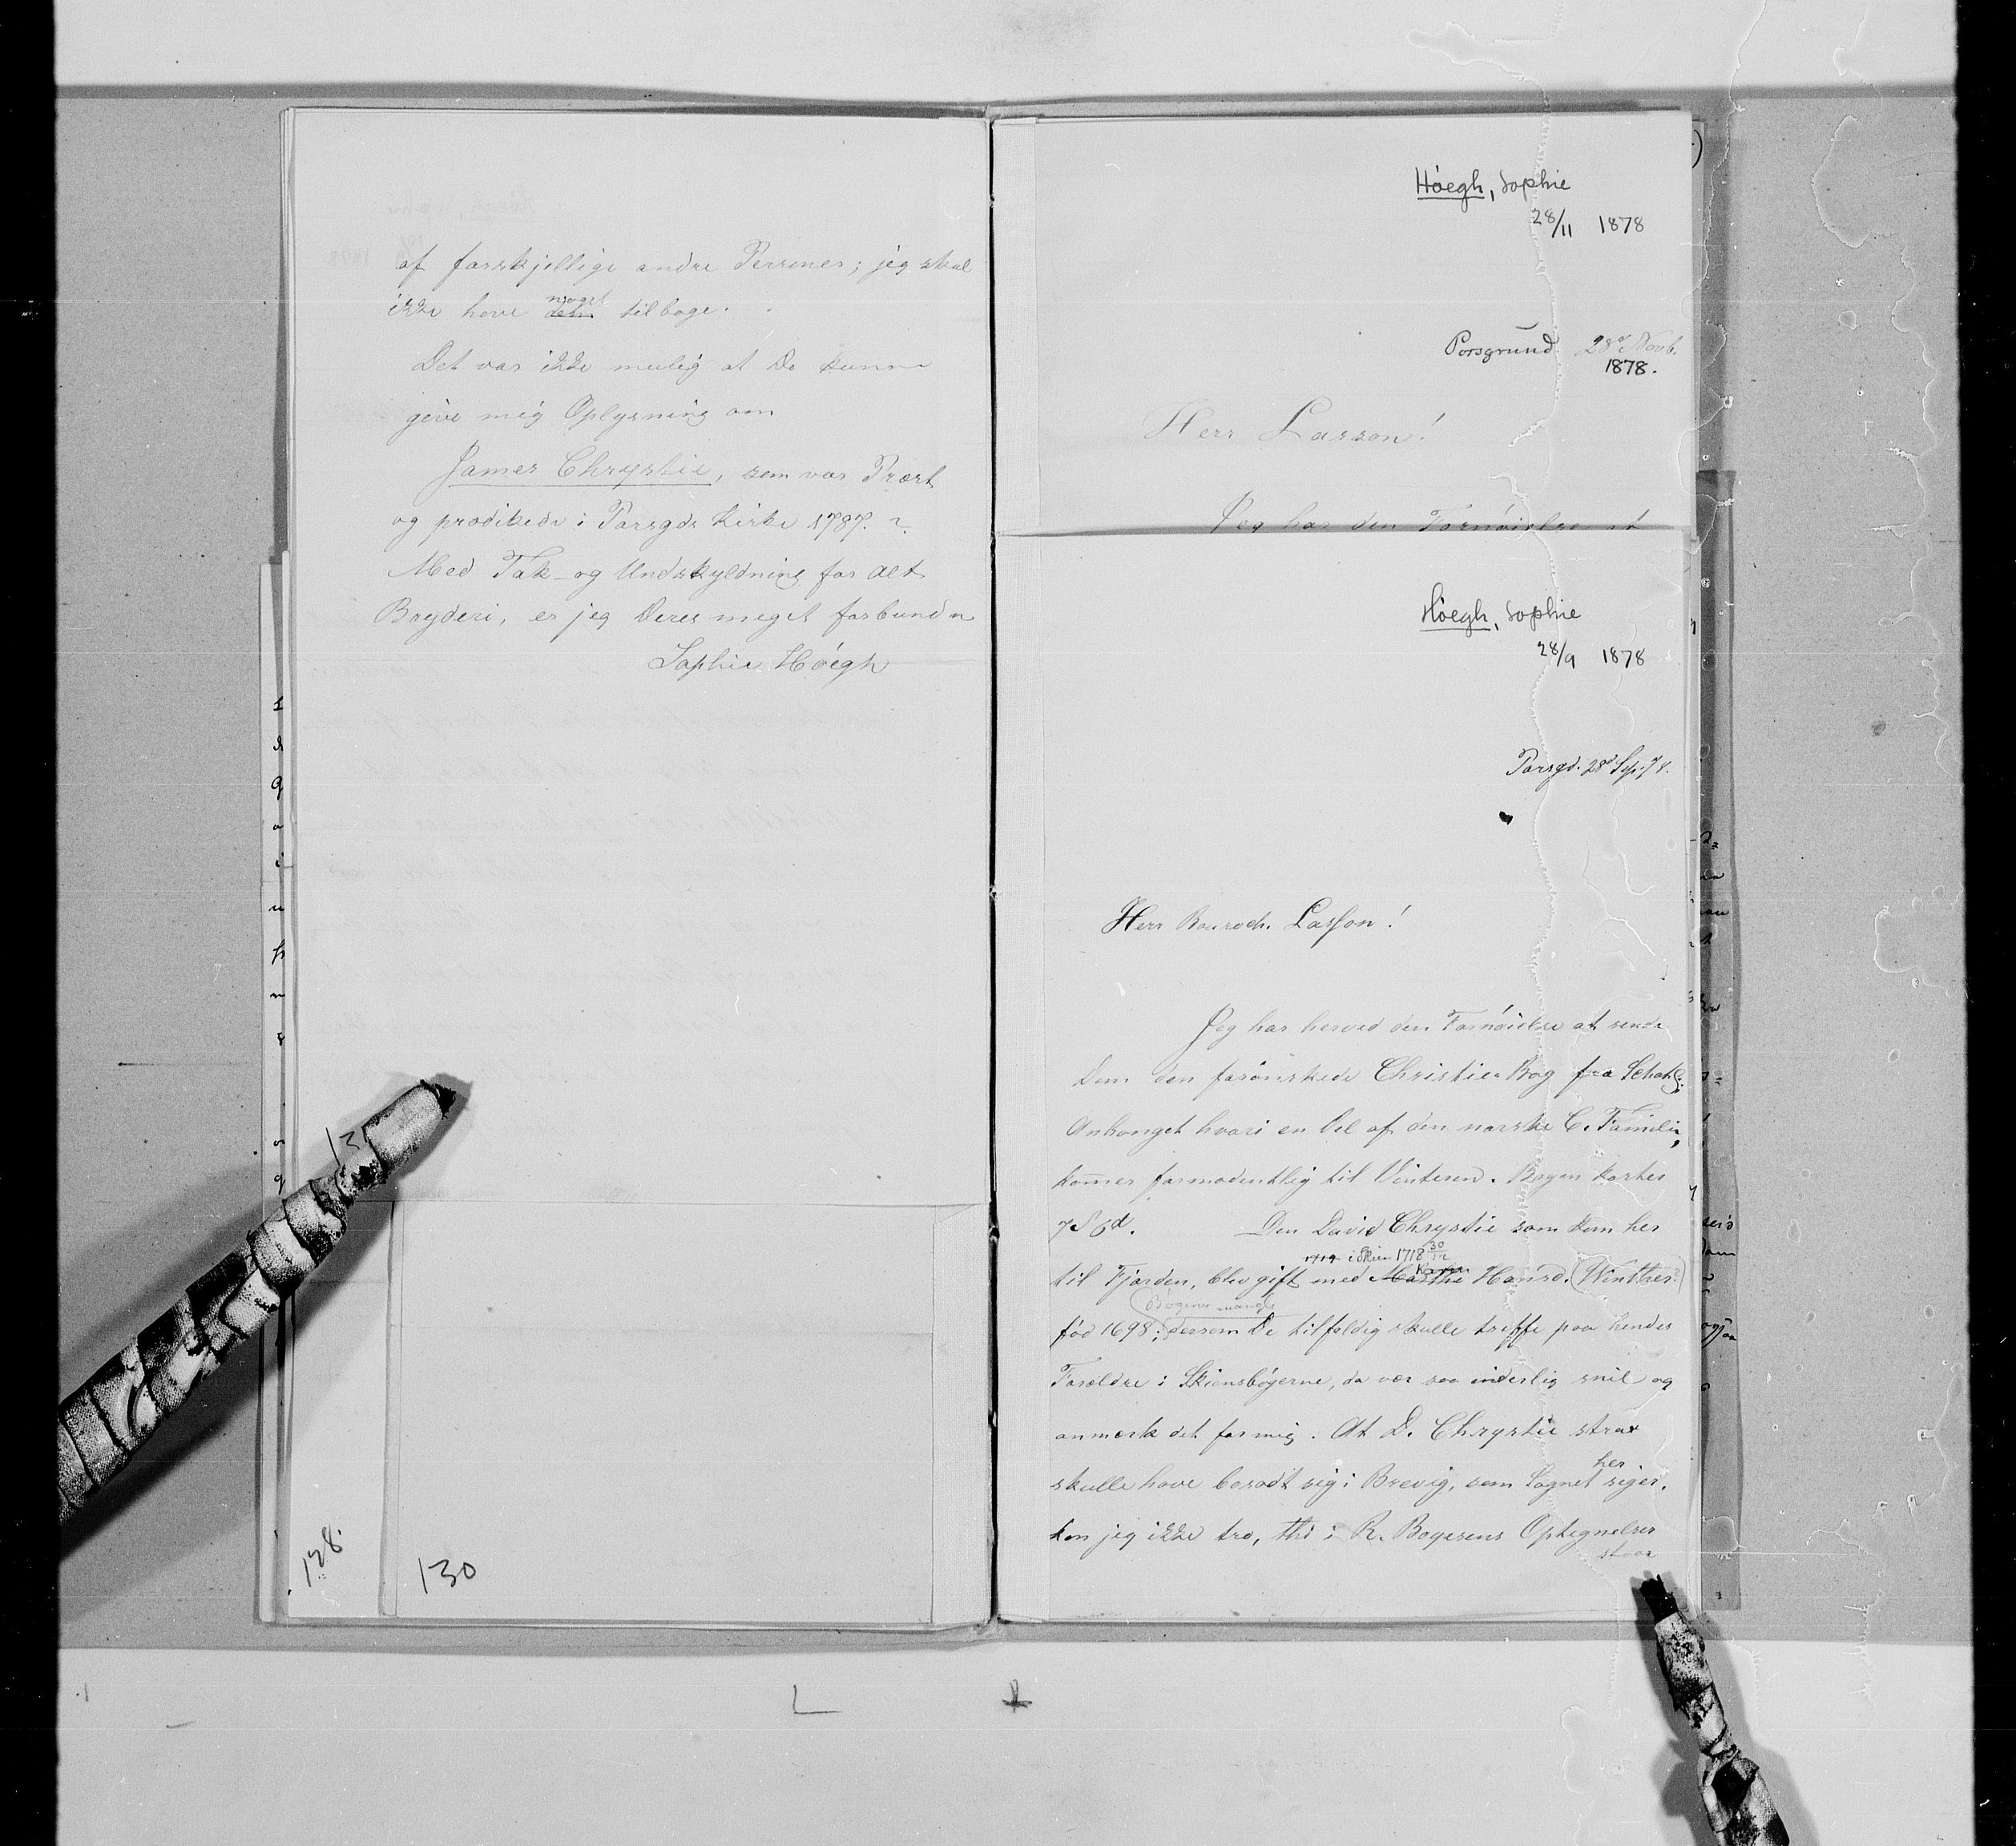 af forskjellige andre Personer; jeg skal
ikke have noget tilbage.
Det var ikke mulig at De kunne
give mig Oplysning om
James Chrystie, som var Præst
og prædikede i Porsgds Kirke 1787. ?
Med Tak og Undskyldning for alt
Bryderi, er jeg Deres meget forbundne
Sophie Höegh
128.
130
Höegh, Sophie
28/11 1878
Porsgrund 28de Novb.
1878.
Herr Lasson!
Jeg har den Fornöielse at
Höegh, Sophie
28/9 1878
Porsgd. 28d Sep. 78.
Herr Lasson!
Jeg har herved den Fornöielse at sende
Dem den forönskede Christie Bog fra
Anhanget hvori en Del af den norske C. Familie,
kommer formodentlig til Vinteren. Bogen kostes
7 S 6d. Den David Chrystie som kom her
1719 i Skien 1718 30/12
til Fjorden, blev gift med Marthe Hansd. (Winther?)
(Bögerne mangle
föd 1698; dersom De tilfældig skulle treffe paa hendes
Forældre i Skiensbögerne, da vær saa inderlig snil og
anmærk det for mig. At D. Chrystie strax
her
skulle have bosadt sig i Brevig, som Sagnet siger,
kan jeg ikke tro, thi i R. Boyesens Optegnelser
staar